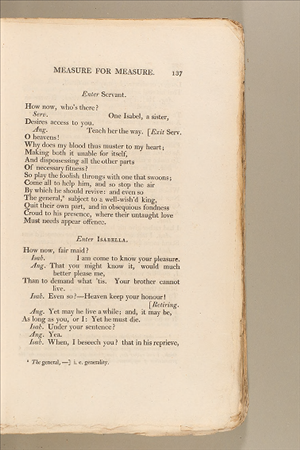 MEASURE FOR MEASURE. 137
Enter Servant.
How now, who's there?
Serv. One Isabel, a sister,
Desires access to you.
Ang. Teach her the way. [Exit Serv.
O heavens!
Why does my blood thus muster to my heart;
Making both it unable for itself,
And dispossessing all the other parts
Of necessary fitness?
So play the foolish throngs with one that swoons;
Come all to help him, and so stop the air
By which he should revive: and even so
The general,⁸ subject to a well-wish'd king,
Quit their own part, and in obsequious fondness
Croud to his presence, where their untaught love
Must needs appear offence.
Enter ISABELLA.
How now, fair maid?
Isab. I am come to know your pleasure.
Ang. That you might know it, would much
better please me,
Than to demand what 'tis. Your brother cannot
live.
Isab. Even so?—Heaven keep your honour!
[Retiring.
Ang. Yet may he live a while; and, it may be,
As long as you, or I: Yet he must die.
Isab. Under your sentence?
Ang. Yea.
Isab. When, I beseech you? that in his reprieve,
⁸ The general, —] i. e. generality.